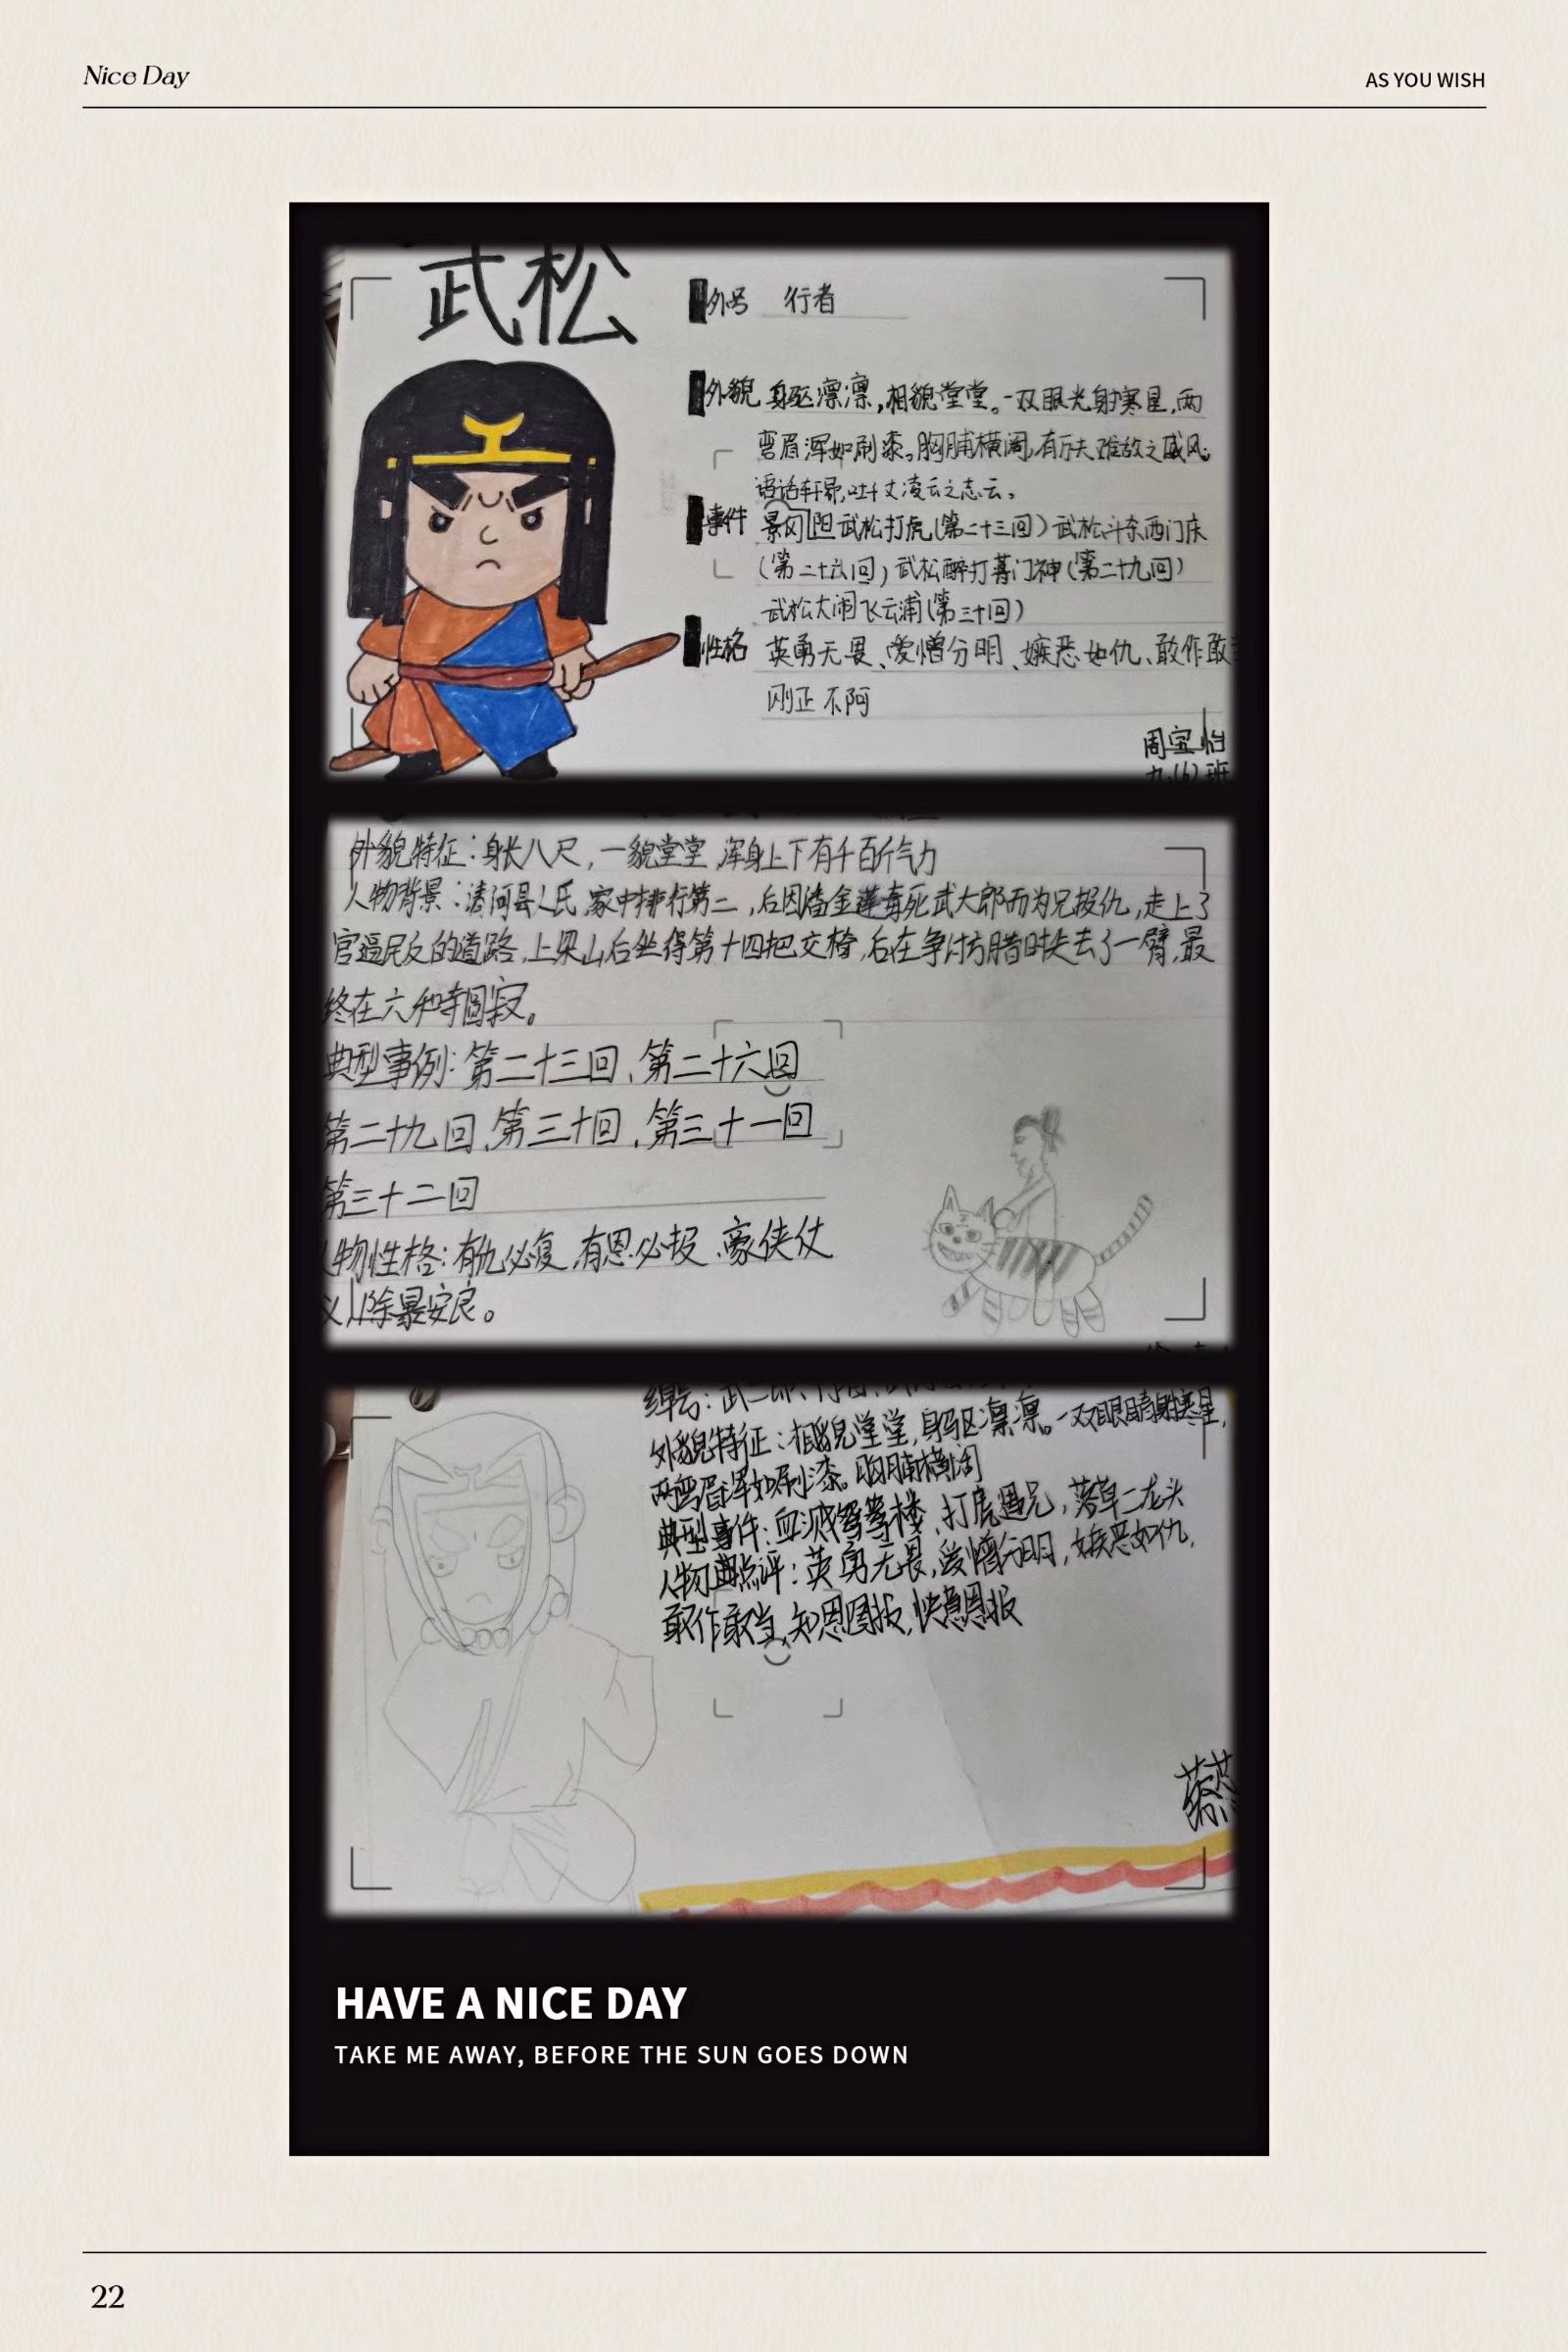 Nice Day
AS YOU WISH
武松
外号 行者
外貌 身躯凛凛,相貌堂堂。一双眼光射寒星,两
弯眉浑如刷漆。胸脯横阔,有万夫难敌之威风。
语话轩昂,吐千丈凌云之志云。
事件 景冈阳武松打虎(第二十三回)武松斗杀西门庆
(第二十六回)武松醉打蒋门神(第二十九回)
武松大闹飞云浦(第三十回)
性格 英勇无畏、爱憎分明、嫉恶如仇、敢作敢
刚正不阿
周宝怡
九(6)班
外貌特征:身长八尺,一貌堂堂,浑身上下有千百斤气力
人物背景:清河县人氏,家中排行第二,后因潘金莲毒死武大郎而为兄报仇,走上了
官逼民反的道路,上梁山后坐得第十四把交椅,后在争讨方腊时失去了一臂,最
终在六和寺圆寂。
典型事例:第二十三回、第二十六回
第二十九回、第三十回、第三十一回
第三十二回
人物性格:有仇必复,有恩必报、豪侠仗
义,除暴安良。
绰号:武二郎、行者
外貌特征:相貌堂堂,身躯凛凛。一双眼睛射寒星,
两弯眉浑如刷漆。胸脯横阔
典型事件:血溅鸳鸯楼、打虎遇兄,落草二龙头
人物点评:英勇无畏,爱憎分明,嫉恶如仇,
敢作敢当,知恩图报,快意恩报
蔡
HAVE A NICE DAY
TAKE ME AWAY, BEFORE THE SUN GOES DOWN
22